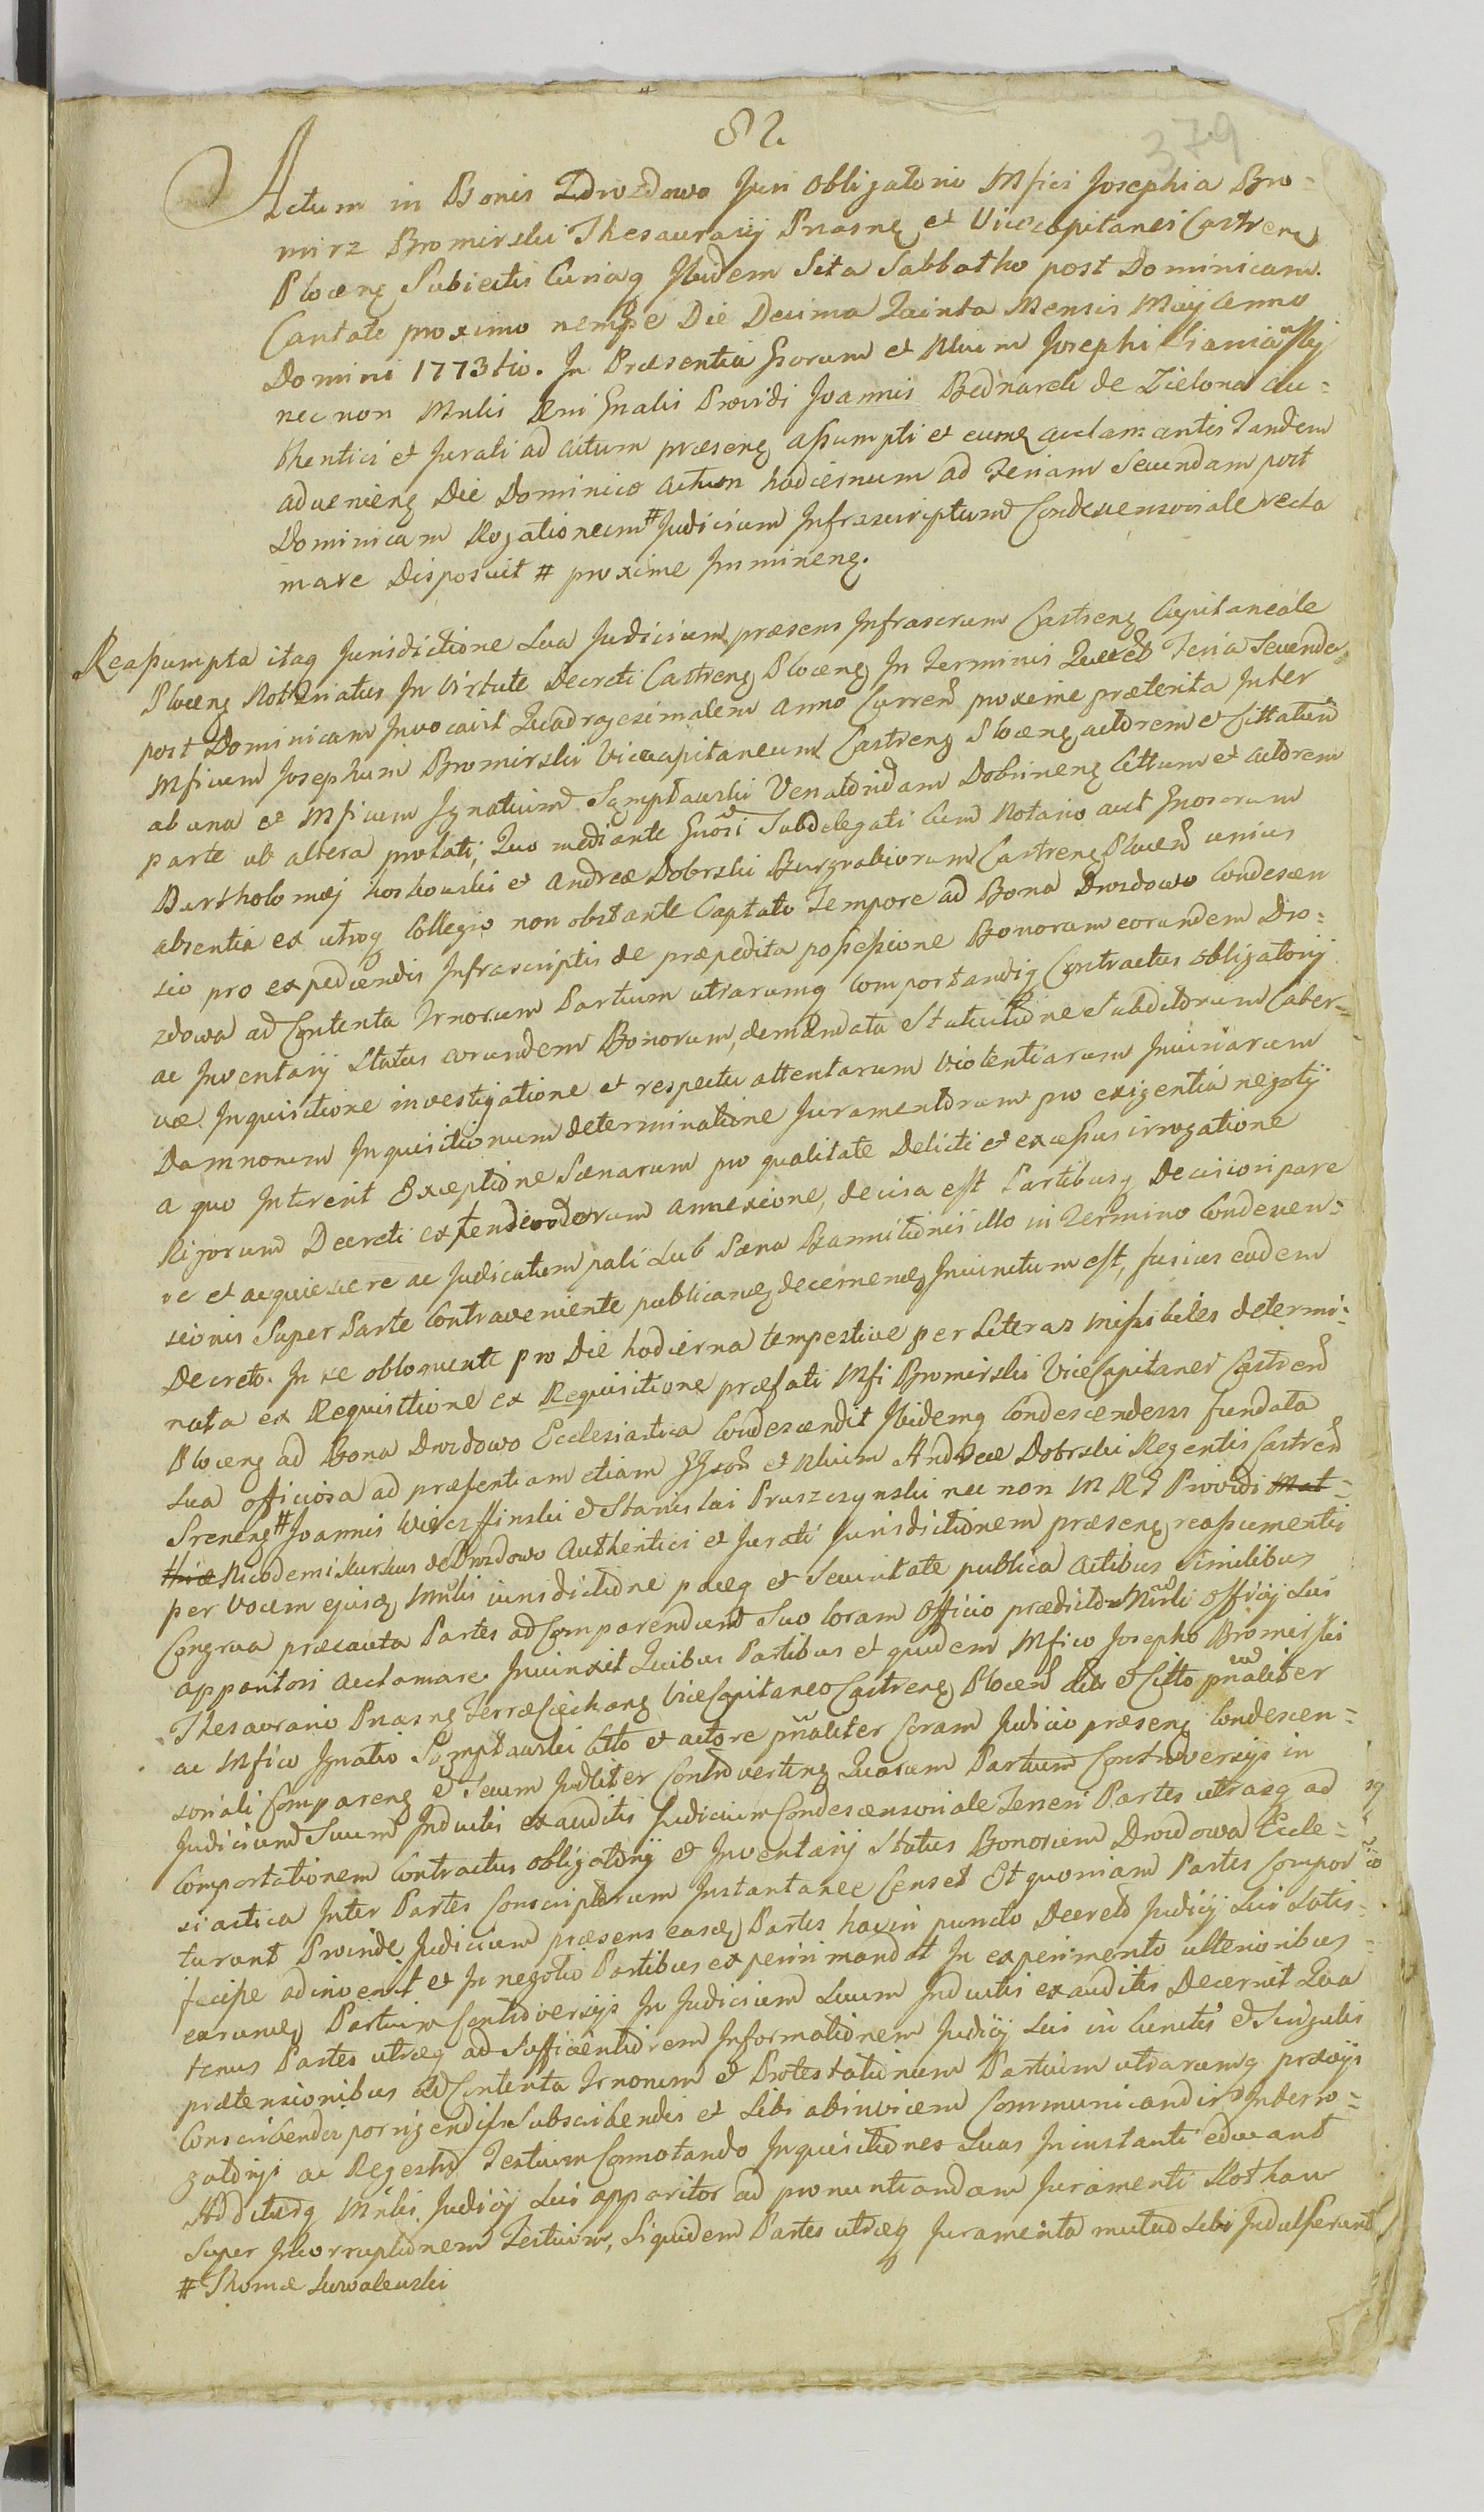 82
379
Actum in Bonis Zdrozdowo Juri Obligatorio Mfici Josephi a Bro=
mirz Bromirski Thesaurarij Prasneg et Vicecapitanei Castreng
Ploceng Subiectis Curiaq Ibidem Sita Sabbatho post Dominicam
Cantate proximo nempe Die Decima Quinta Mensis Maij Anno
Domini 1773tio. In Præsentia Gsorum et Nlium Josephi
nec non Mnlis Rni Gnalis Providi Joannis Bednarek de Zielona Au=
thentici et Jurati ad actum præseng assumpti et eumq acclamantis Tandem
advenieng Die Dominico actum hodiernum ad Feriam Secundam post
Dominicam Rogationum # Judicium Infrascriptum Condescensoriale recla
mare Disposuit # proxime Imineng.
Reassumpta itaq Jurisdictione Sua Judicium præsens Infrascrum Castreng Capitaneale
Ploceng Notariatus In Virtute Decreti Castreng Ploceng In Terminis Quer Feria Secunda
post Dominicam Invocavit Quadragesimalem Anno Curren proxime præterita Inter
Mficum Josephum Bromirski Vicecapitaneum Castreng Ploceng actorem et Cittatum
ab una et Mficum Ignatium Sumptawski Venatoridam Dobrineng Cittum et actorem
parte ab altera prolati, Quo mediante Gnosi Subdelegati Cum Notario aut Gnosorum
Bartholomæj Koskowski et Andreæ Dobrski Burgrabiorum Castreng Plocen unius
absentia ex utroq Collegio non obstante Captato Tempore ad Bona Drozdowo Condescen
sio pro expediendis Infrascriptis de præpedita possessione Bonorum eorundem Dro=
zdowa ad Contenta Irnorum Partium utrarumq Comportandiq Contractus obligatorij
ac Inventarij Status eorundem Bonorum, demandata Statuitione Subditorum Caber=
væ Inquisitione investigatione et respectu attentarum Violentiarum Iniuriarum
Damnorum Inquisitionum determinatione Juramentorum pro exigentia negotij
a quo Intererit Exceptione Pænarum pro qualitate Delicti et excessus irrogatione
Rigorum Decreti extendendorum annexione, decisa est Partibusq Decisioni pare
re et acquiescere ac Judicatum pati Sub Pæna Bannitionis illo in Termino Condescen=
sionis Super Parte Contraveniente publicaneq decerneneq Iniunctum est, fusius eodem
Decreto In se obloquente pro Die hodierna tempestive per Literas missibiles determi=
nata ex Requisitione ex Requisitione præfati Mfi Bromirski ViceCapitanei Castren
Ploceng ad Bona Drozdowo Ecclesiastica Condescendit Ibidemq Condescendens fundata
Sua officiosa ad præsentiam etiam et Nlium Andreæ Dobrski Regentis Castren
Sreneng # Joannis Wierzffinski et Stanislai Pruszczynski nec non M R G Providi Mat=
thiæ Nicodemi Kurkus de Drozdowo Authentici et Jurati Jurisdictionem præseng reassumentis
per Vocem ejusq Mnlis iurisdictione paceq et Securitate publica actibus Similibus
Congrua præcauta Partes ad Comparendum Suo Coram Officio prædicto Mnrli Officij Sui
apparitori acclamare Iniunxit Quibus Partibus et quidem Mfico Josepho Bromirski
Thesaurario Prasng Terræ Ciechang ViceCapitaneo Castreng Plocen Actore et Citto pnaliter
ac Mfico Ignatio Sumptawski Citto et actore pnaliter Coram Judicio præseng Condescen=
soriali Compareng et Secum Judliter Controverting Quarum Partium Controversijs in
Judicium Suum Inductis exauditis Judicium Condescensoriale Teneri Partes utrasq ad
Comportationem Contractus obligatorij et Inventarij Status Bonorum Drozdowa Eccle=
siastica Inter Partes Conscriptorum Instantanee Censet Et quoniam Partes Compor
tarunt Proinde Judicium præsens easdq Partes hac in puncto Decreto Judicij Sui Satis=
fecisse adinvenit et In negotio Partibus experiri mandat In experimento ulterioribus
earumq Partium Controversijs In Judicium Suum Inductis exauditis Decernit Qua
tenus Partes utræq ad Sufficientiorem Informationem Judicij Sui in Cunctis et Singulis
prætensionibus ad Contenta Irnorum et Protestationum Partium utrarumq prævijs
Conscribendis porrigendis Subscribendis et Sibi abinvicem Communicandis Interro=
gatorijs ac Regestro Testium Connotando Inquisitiones Suas In instanti educant
Additurq Mnlis Judicij Sui apparitor ad pronuntiandam Juramenti Rotham
Super Incorruptionem Testium, Siquidem Partes utræq Juramenta mutuo Sibi Indulserunt
# Thomæ Suwalewski